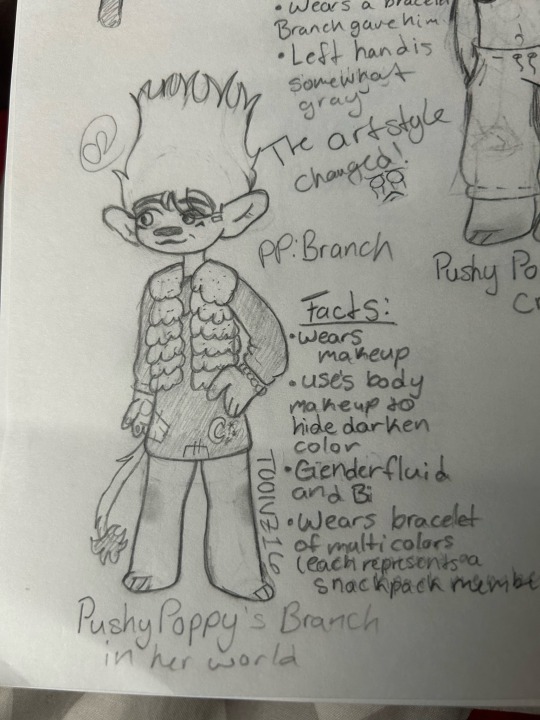 • Wears a bracelet
Branch gave him
• Left hand is
somewhat
gray
The art style
changed!
PP: Branch
Pushy Po
Cr
Facts:
• Wears
makeup
• uses body
makeup to
hide darken
color
• Genderfluid
and Bi
• Wears bracelet
of multicolors
(each represents a
snackpack membe
TOONZ16
Pushy Poppy's Branch
in her world